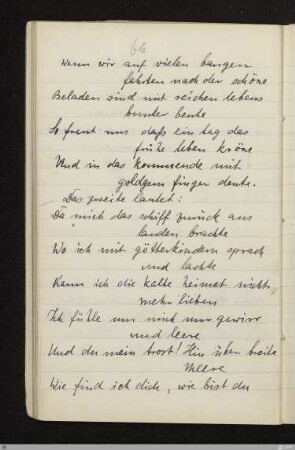 66
Wenn wir auf vielen bangen
fehrten nach der schöne
Beladen sind mit reichen lebens
bunter beute
So freut uns daſs ein tag das
frühe leben kröne
Und in das kommende mit
goldgem finger deute.
Das zweite lautet:
Da mich das schiff zurück aus
landen brachte
Wo ich mit götterkindern sprach
und lachte
Kann ich die kälte heimat nicht
mehr lieben
Ich fühle um mich nur gewirr
und leere
Und du mein trost! Hin über breite
Meere
Wie find ich dich, wie bist du